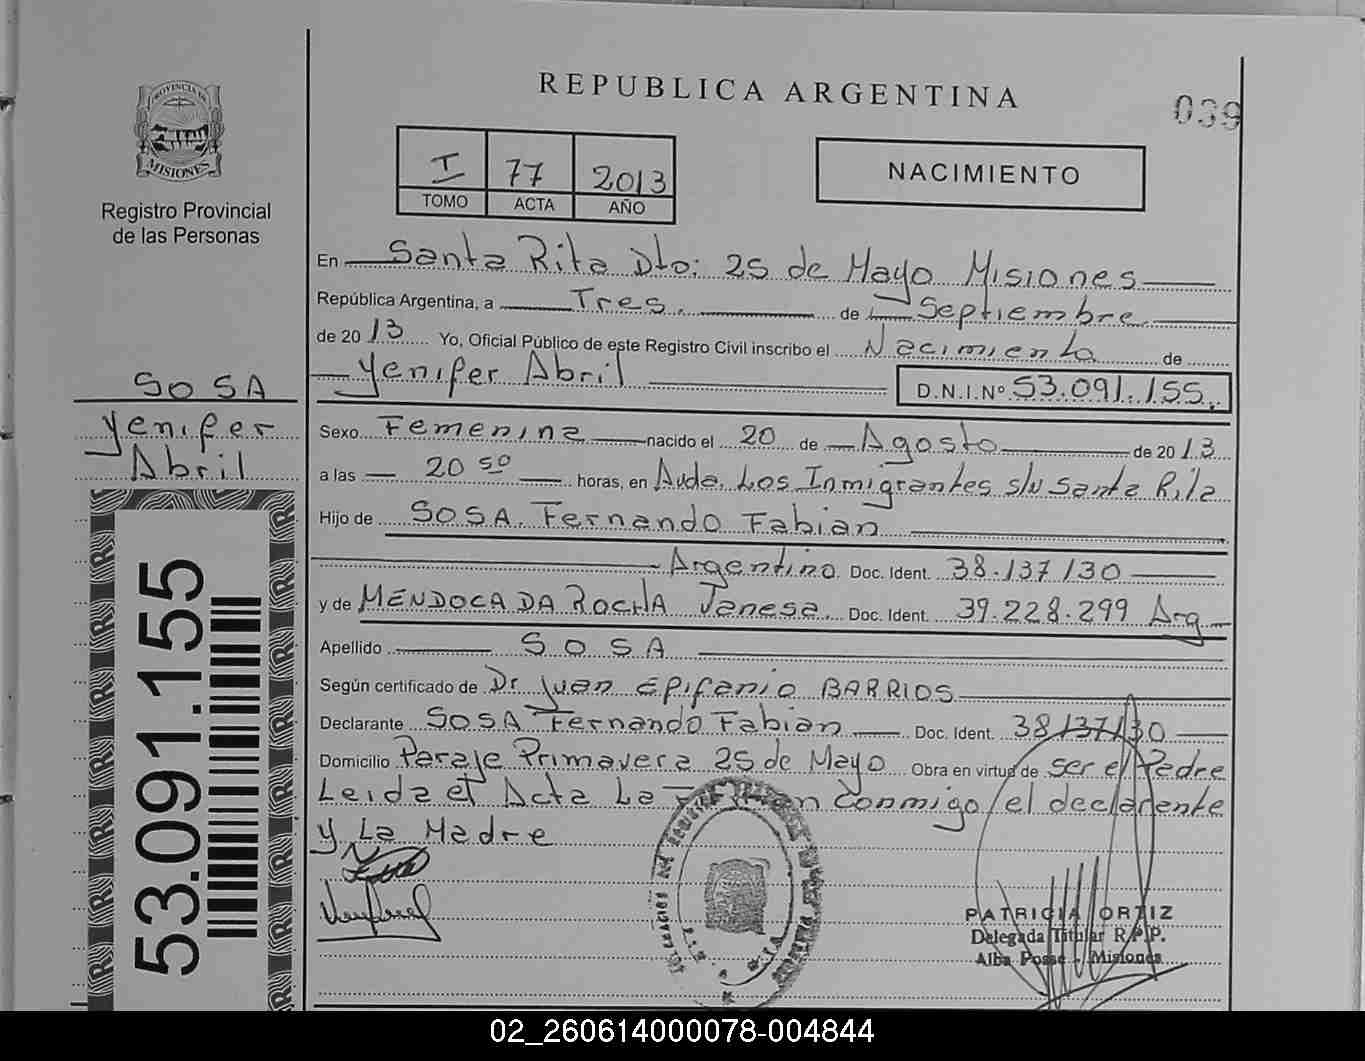 REPUBLICA ARGENTINA
039
PROVINCIA DE
MISIONES
Registro Provincial
de las Personas
I 77 2013
TOMO ACTA AÑO
NACIMIENTO
En Santa Rita Dto: 25 de Mayo Misiones
República Argentina, a Tres. de Septiembre
de 2013 Yo, Oficial Público de este Registro Civil inscribo el Nacimiento de
Yenifer Abril D.N.I.Nº 53.091.155.
SOSA
Yenifer
Abril
Sexo Femenina nacido el 20 de Agosto de 2013
a las 20 50 horas, en Avda. Los Inmigrantes s/N Santa Rita
Hijo de SOSA, Fernando Fabian
Argentino. Doc. Ident. 38.137130
y de MENDOCA DA ROCHA Janesa Doc. Ident. 39.228.299 Arg
Apellido SOSA
Según certificado de Dr Juan Epifanio BARRIOS
Declarante SOSA Fernando Fabian Doc. Ident. 38137130
Domicilio Paraje Primavera 25 de Mayo Obra en virtud de ser el Padre
Leida el Acta La conmigo el declarante
y La Madre
53.091.155
PATRICIA ORTIZ
Delegada Titular R.P.P.
Alba Posse - Misiones
02_260614000078-004844